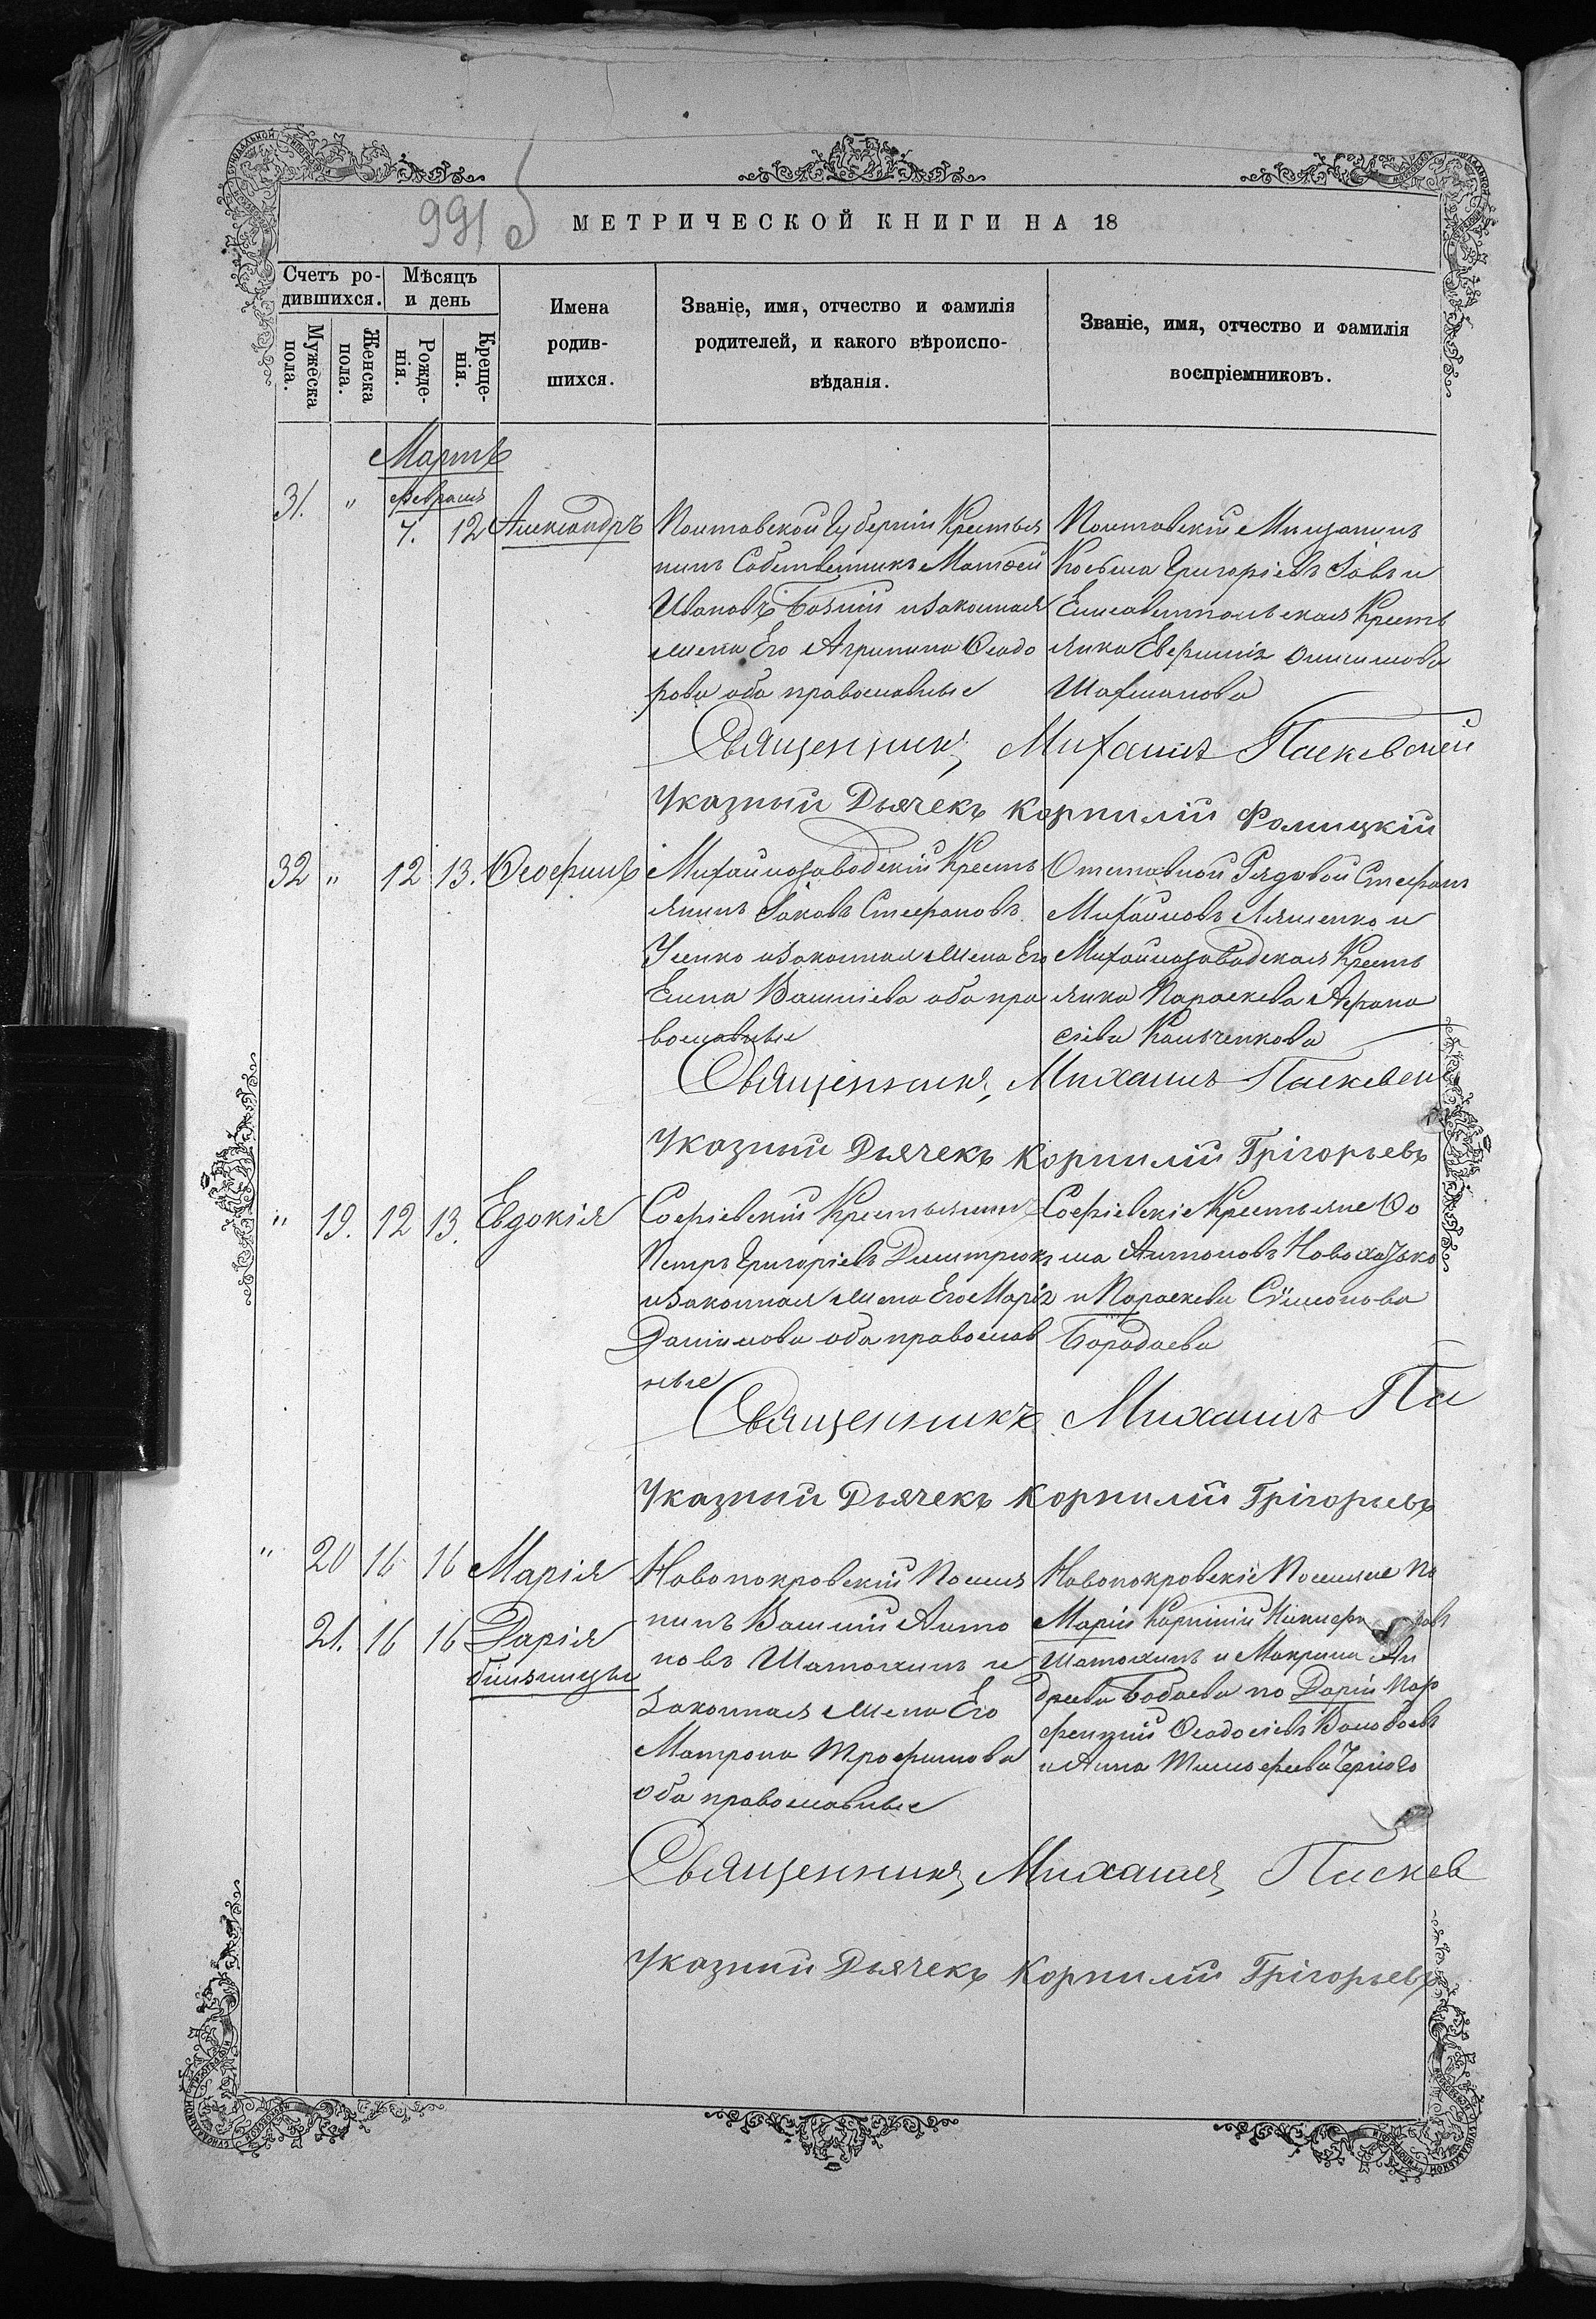 991 б
МЕТРИЧЕСКОЙ КНИГИ НА 18
Счетъ ро-
дившихся.
Мѣсяцъ
и день
Мужеска
пола.
Женска
пола.
Рожде-
нія.
Креще-
нія.
Имена
родив-
шихся.
Званіе, имя, отчество и фамилія
родителей, и какого вѣроиспо-
вѣданія.
Званіе, имя, отчество и фамилія
воспріемниковъ.
Мартъ
31. " февраля
7. 12 Александръ
Полтавской Губерніи Крестья
нинъ Собственникъ Матѳей
Ивановъ и законная
жена Его Агрипина Ѳеодо
рова оба православные
Полтавскій Мищанинъ
Косьма Григоріевъ и
Елисаветпольская Кресть
янка
Шахманова
Священникъ Михаилъ Паскевичъ
Указный Дьячекъ Корнилій
32 " 12 13. Ѳеофилъ
Михайлозаводскій Кресть
янинъ Іаковъ Стефановъ
Усенко и законная жена Его
Елена Василіева оба пра
вославные
Отставной Рядовой Стефанъ
Михайловъ Ляшенко и
Михайлозаводская Кресть
янка Параскева Афана
сіева Кальченкова
Священникъ Михаилъ Паскевич
Указный Дьячекъ Корнилій Грігорьевъ
" 19. 12 13. Евдокія
Софіевскій Крестьянин
Петръ Григоріевъ Дмитрюкъ
и законная жена Его Марія
Данилова оба православ
ные
Софіевскіе Крестьяне Ѳо
ма Антоновъ
и Параскева Сѵмонова
Бородаева
Священникъ Михаилъ Па
Указный Дьячекъ Корнилій Грігорьевъ
" 20 16 16 Марія
21. 16 16 Дарія
близницы
Новопокровскій Поселя
нинъ Василій Анто
новъ Шатохинъ и
Законная жена Его
Матрона Трофимова
оба православные
Новопокровскіе Поселяне По
Маріи
Шатохинъ и Макрина Ан
дреева Бабаева по Даріи Пар
феній Ѳеодосіевъ
и Анна Тимофеева
Священникъ Михаилъ Паскев
Указный Дьячекъ Корнилій Грігорьевъ